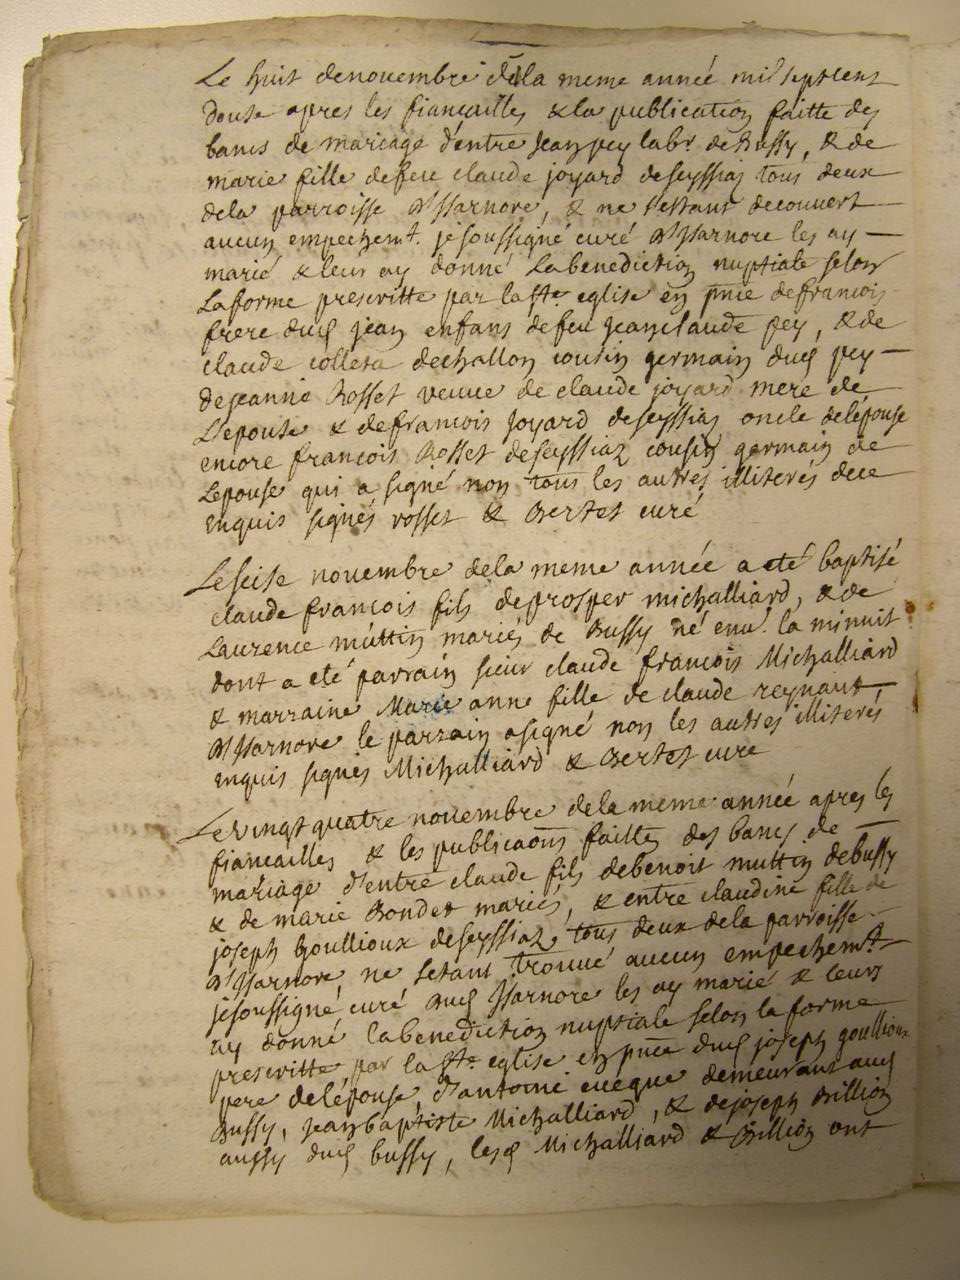 Le huit denovembre dela meme année mil septcent
douse apres les fiançailles & la publication faitte des
bancs de mariage d'entre Jean pey labr. de Bussy, & de
marie fille defeu claude joyard deseyssiaz tous deux
dela parroisse d'Isarnore, & ne s'estant decouvert
aucun empechemt. jesoussigné curé d'Isarnore les ay
marié & leur ay donné La benediction nuptiale selon
La forme prescritte par la ste eglise en pnce defrancois
frere dud jean enfans defeu Jeanclaude pey, & de
claude collera dechallon cousin germain dud pey
dejeanne Rosset veuve de claude joyard mere de
L'epouse & defrancois Joyard deseyssiaz oncle deléépouse
encore francois Rosset deseyssiaz cousin germain de
Lepouse qui a signé non tous les autres illiterés dece
enquis signés rosset & Bertet curé
Leseise novembre dela meme année a eté baptisé
claude francois fils deprosper michalliard, & de
Laurence muttin mariés de Bussy né env. la minuit
dont a eté parrain sieur claude francois Michalliard
& marraine Marie anne fille de claude reynaut,
d'Isarnore le parrain asigné non les autres illiterés
enquis signés Michalliard & Bertet curé
Le vingt quatre novembre dela meme année apres les
fiancailles & les publicaons faittes des bancs de
mariage d'entre claude fils debenoit muttin debussy
& de marie Bondet mariés, & entre claudine fille de
joseph Goullioux deseyssiaz, tous deux dela parroisse
d'Isarnore, ne s'etant trouvé aucun empechemt.
jesoussigné curé dud Isarnore les ay marié & leurs
ay donné labenediction nuptiale selon la forme
prescritte par la ste eglise en pnce dud joseph goullioux
pere deléépouse, d'antoine eveque demeurant aud
Bussy, jeanbaptiste Michalliard, & dejoseph Billion
aussy dud bussy, lesd Michalliard & Billion ont